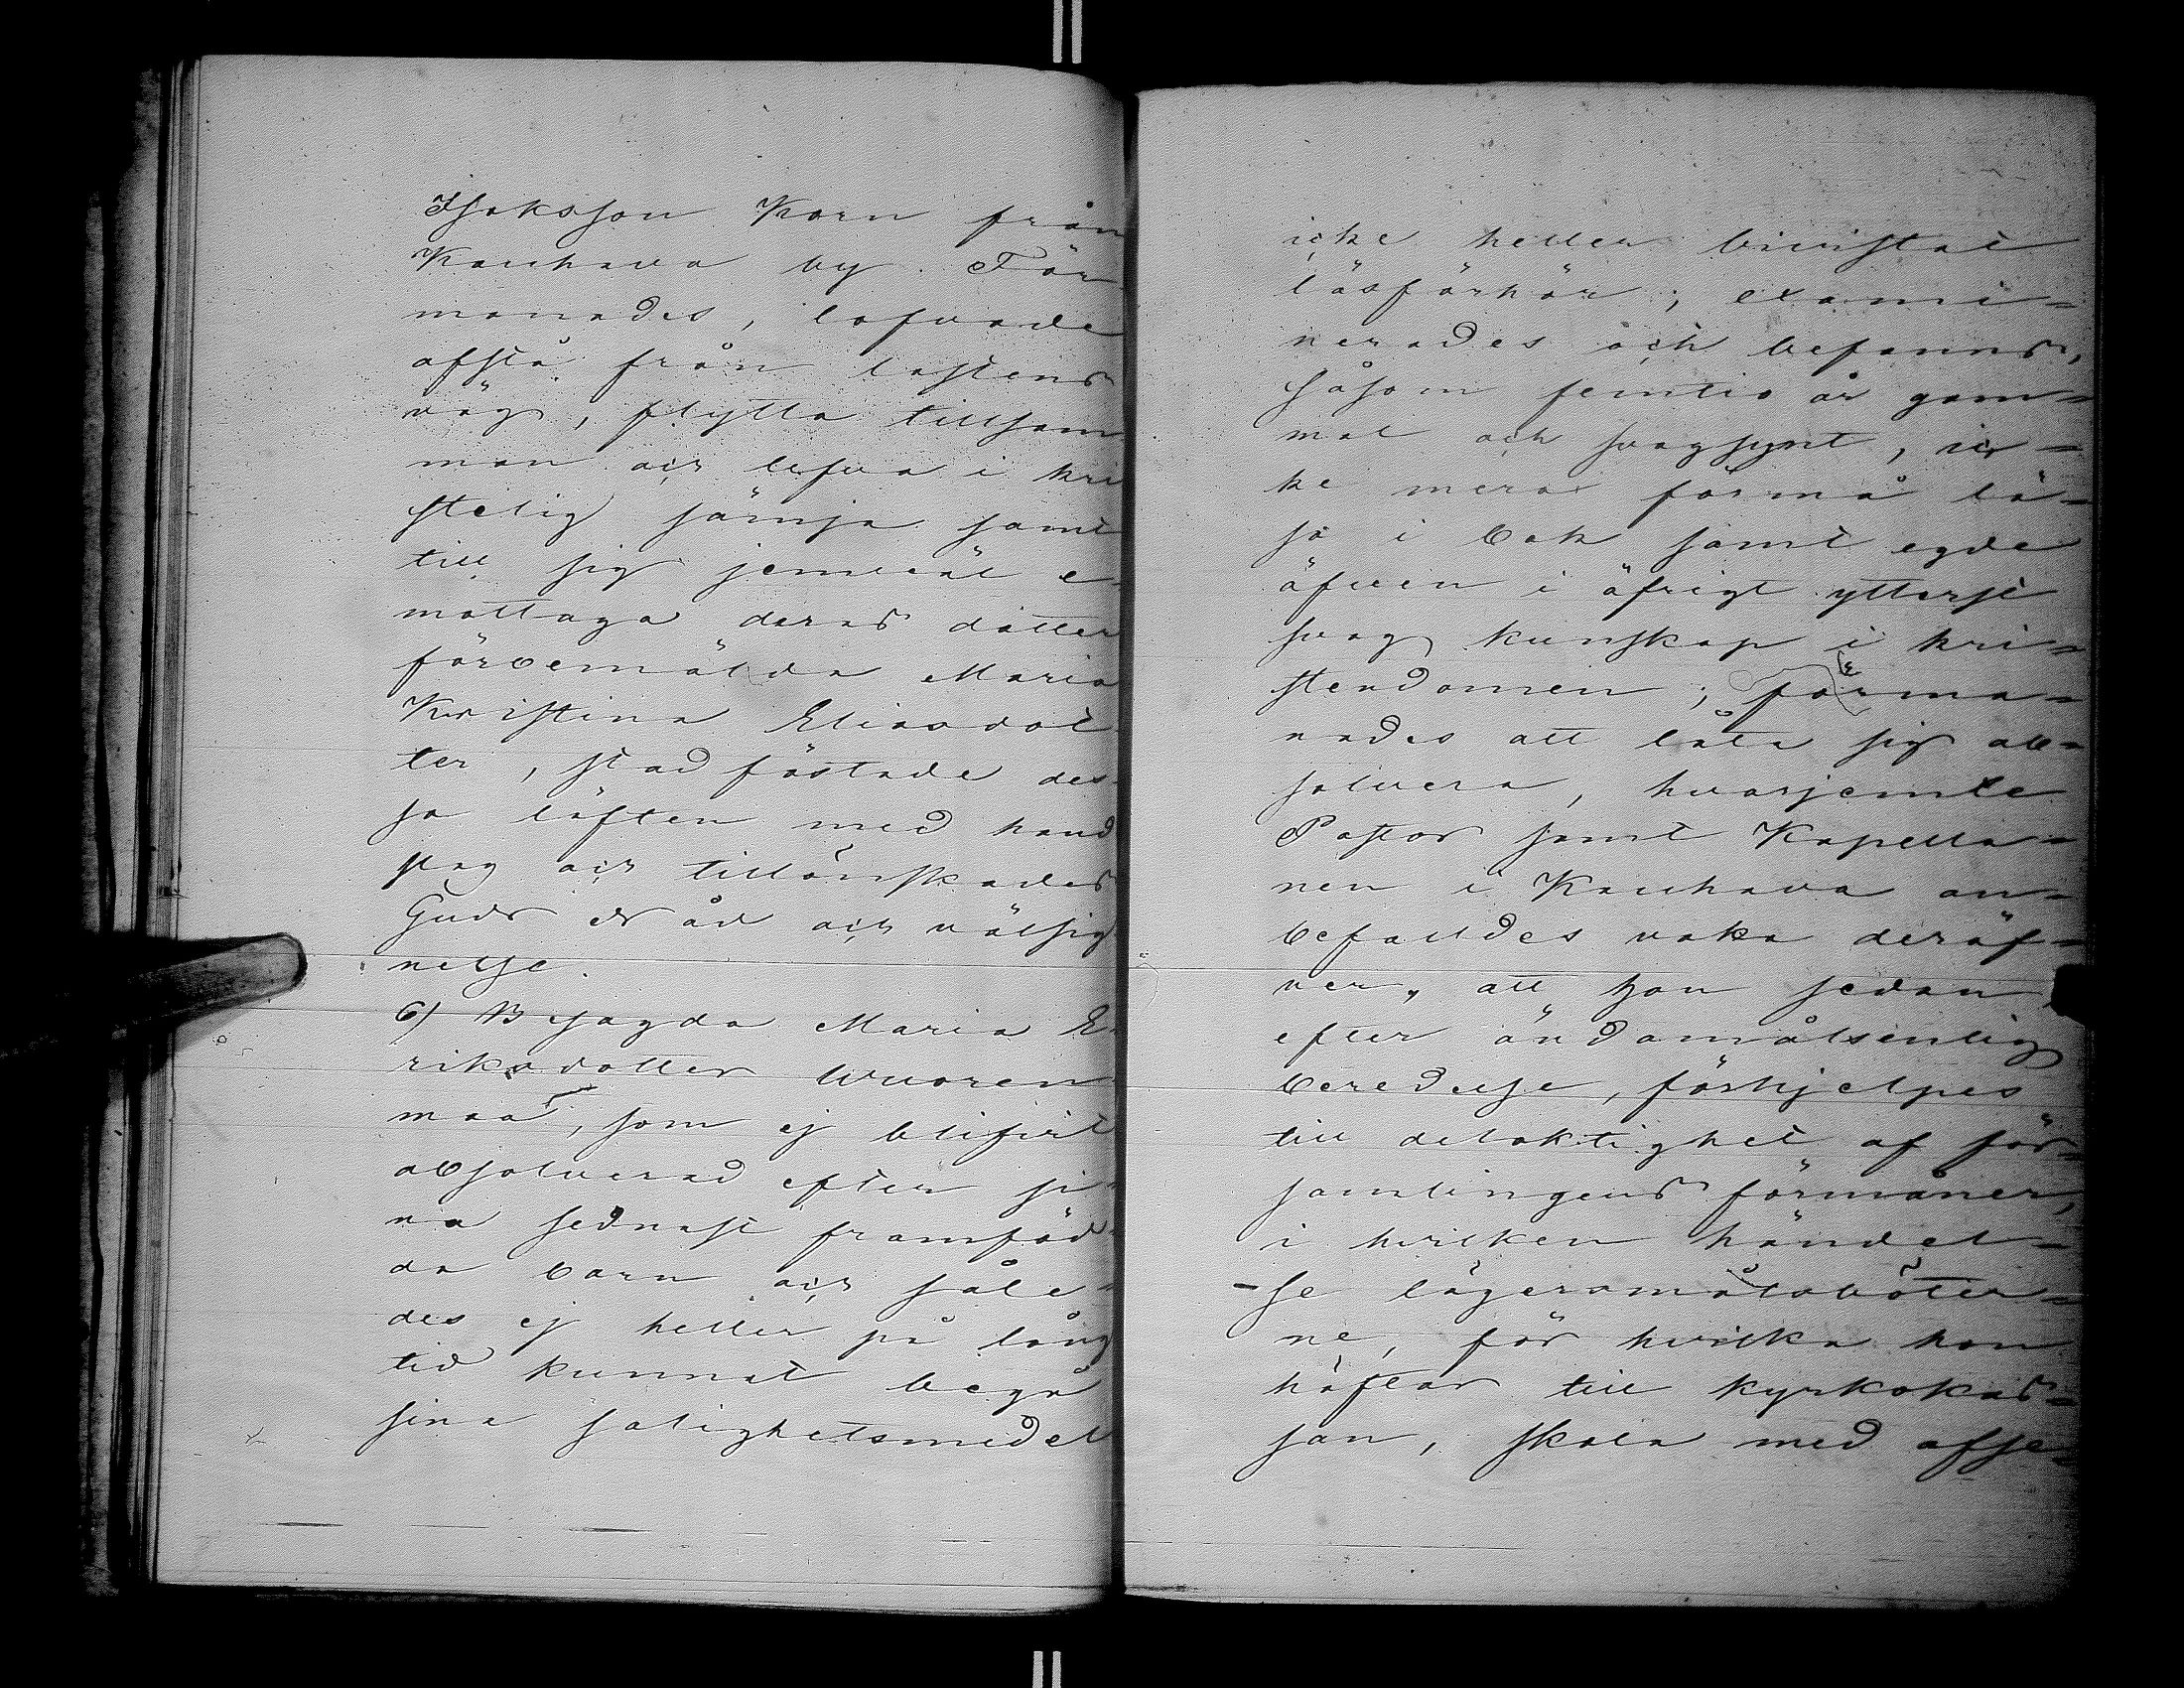 Isaksson Korn från
Kauhava by. För
manades, lofvade
afstå från lastens
väg, flytta tillsam
man och lefva i kri
stelig sämja samt
till sig jemväl e-
mottaga deras dotter
förbemälda Maria
Kristina Eliasdot
ter, stadfästade des-
sa löften med hand
slag och tillönskades
Guds nåd och välsig
nelse.
6) Besagda Maria E-
riksdotter Wuoren
maa, som ej blifvit
absolverad efter si-
na sednast framföd-
da barn och såle-
des ej heller på lång
tid kunnat begå
sina salighetsmedel
icke heller bivistat
läsförhör; exami-
nerades och befanns,
såsom femtio år gam-
mal och svagsynt, ic-
ke mera förmå lä-
sa i bok samt egde
äfven i öfrigt ytterst
svag kunskap i kri-
stendomen; förma-
nades att låta sig ab-
solvera, hvarjemte
Pastor samt Kapella-
nen i Kauhava an-
befalldes vaka deröf-
ver, att hon sedan,
efter ändamålsenlig
beredelse, förhjelpes
till delaktighet af för-
samlingens förmåner,
i hvilken händel-
-se lägersmålsböter-
ne, för hvilka hon
häftar till kyrkokas-
san, skola med afse-